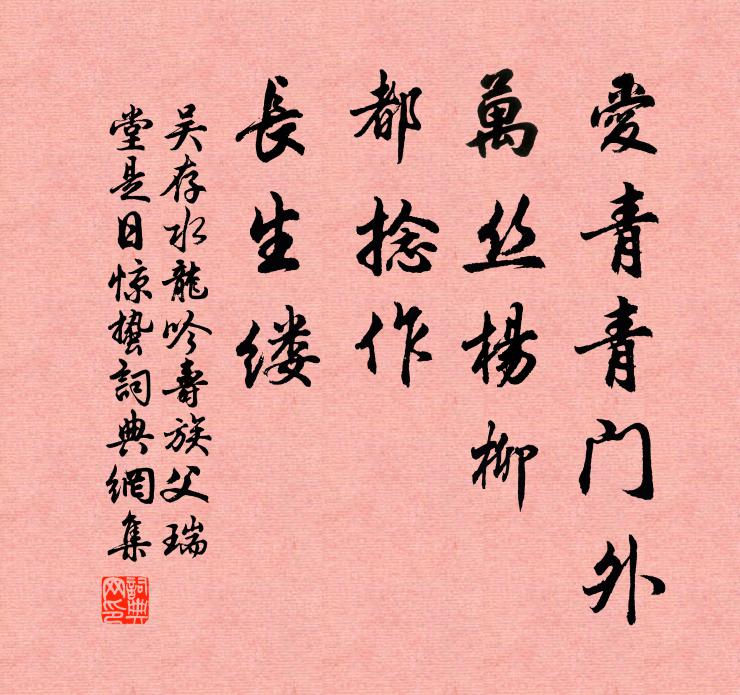 愛青青門外
萬丝楊柳
都捻作
長生缕
吴存水龍吟壽族父瑞
堂是日惊蛰詞典網集
詞典
网印